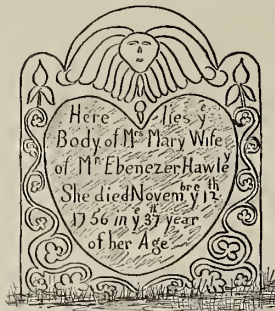 Here lies yᵉ
Body of Mʳˢ Mary Wife
of Mʳ Ebenezer Hawleʸ
She died Novemᵇʳᵉ yᵉ 12ᵗʰ
1756 in yᵉ 37ᵗʰ year
of her Age